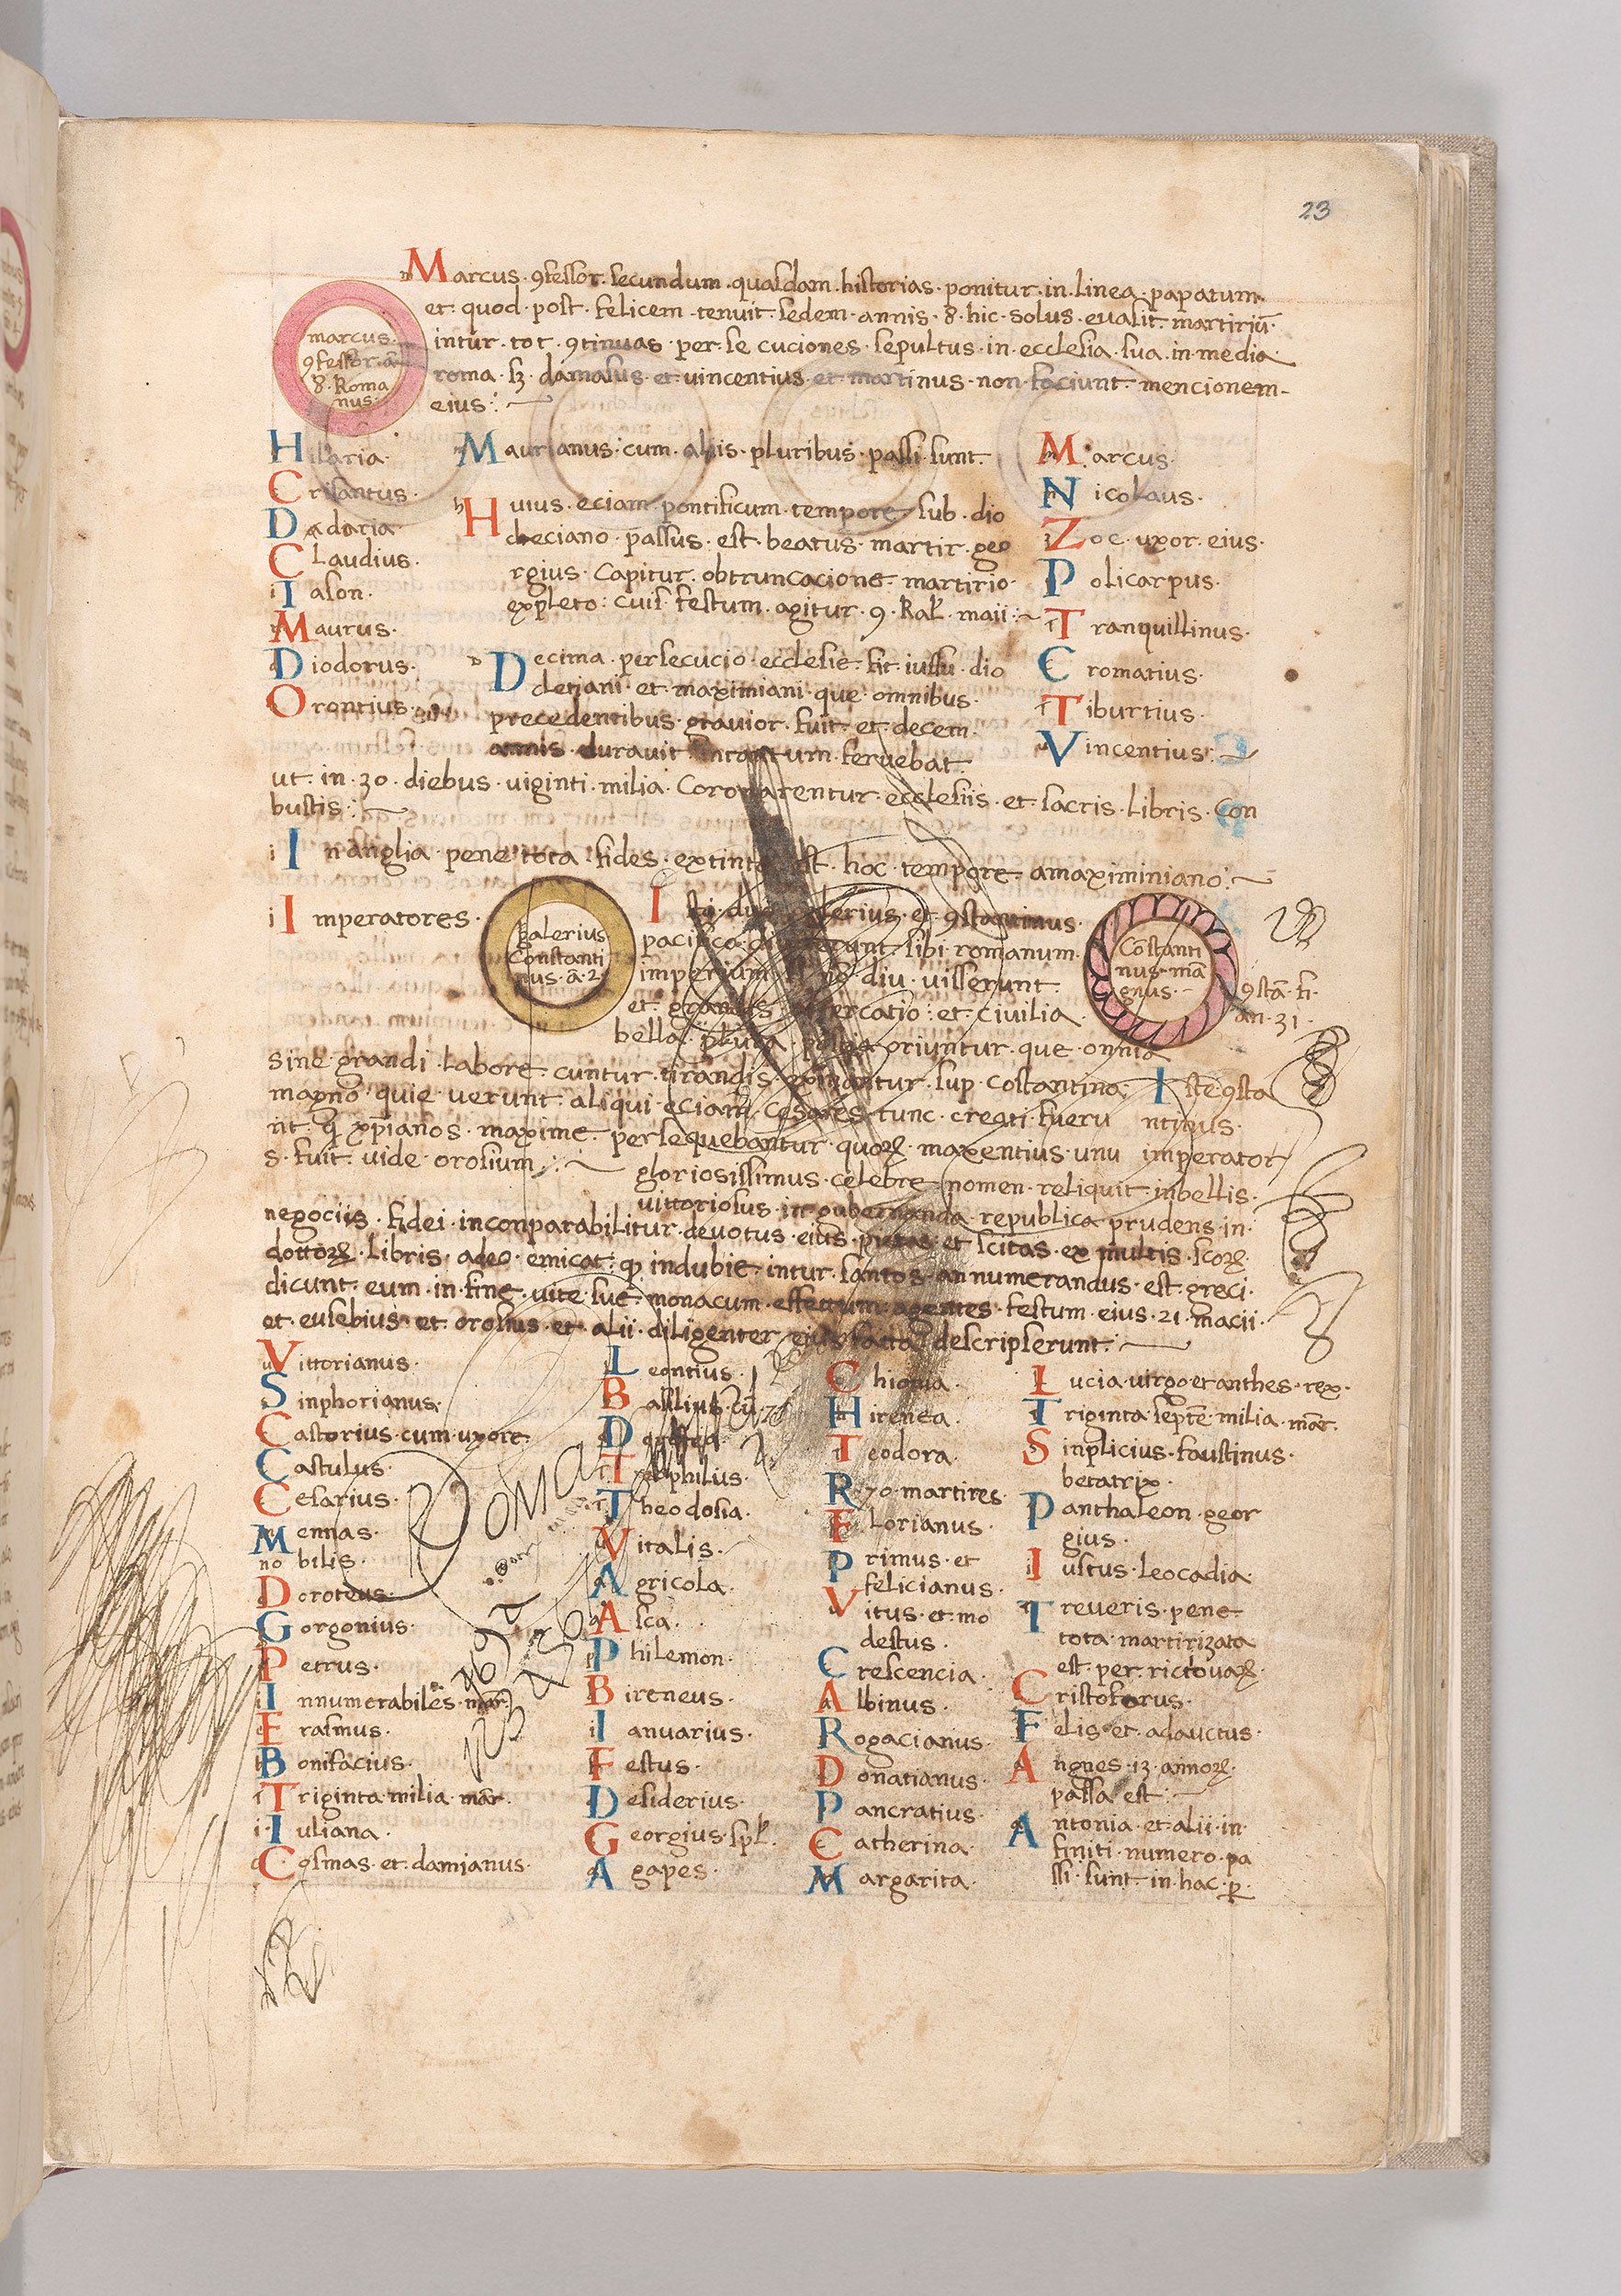 23
Marcus · 9fessor · secundum · quasdam · historias · ponitur · in · linea · papatum ·
et · quod · post · felicem · tenuit · sedem · annis · 8 · hic · solus · evasit · martiriū ·
intur · tot · 9tinuas · per · se cuciones · sepultus · in · ecclesia · sua · in · media
roma · sz · damasus · et · vincentius · et · martinus · non · faciunt · mencionem ·
eius :
marcus ·
9fessor · ā
8 · Roma
nus ·
Hilaria ·
Crisantus ·
Dadaria
Claudius ·
Iason ·
Maurus ·
Diodorus ·
Orontius ·
Maurianus · cum · aliis · pluribus · passi · sunt ·
Huius · eciam · pontificum · tempore · sub · dio
cleciano · passus · est · beatus · martir · geo
rgius · Capitur · obtruncacione · martirio ·
expleto : cuis festum · agitur · 9 · kal · maii :
Decima · persecucio · ecclesie · fit · iussu · dio
cletiani · et · maximiani · que · omnibus ·
precedentibus · gravior · fuit · et · decem ·
annis · duravit · intantum · fervebat ·
Marcus ·
Nicolaus ·
Zoe · uxor · eius ·
Policarpus ·
Tranquillinus ·
Cromatius ·
Tiburtius ·
Vincentius :
ut · in · 30 · diebus · viginti · milia · Coronarentur · ecclesiis · et · sacris · libris · Con
bustis :
In anglia · pene · tota · fides · extinta est · hoc · tempore · amaximiniano :
Imperatores ·
galerius
Constanti
nus · ā · 2
Isti · duo galerius · et · 9stantinus ·
pacifice · diviserunt · sibi · romanum ·
imperium diu · visserunt
et · grandis altercatio : et · civilia
bella · plura · postea · oriuntur · que · omnia
Cōstanti
nus · ma
gnus ·
9stā · fi ·
an · 31 ·
sine · grandi · labore · cuntur · tirandis · eximantur · sup · costantino ·
magno · quie · verunt · aliqui · eciam · Cesares · tunc · creati · fueru
nt · q xp̄ianos · maxime · persequebantur · quoꝝ · maxentius · unu
s · fuit · vide · orosium :
Iste 9sta
ntinus ·
imperator
gloriosissimus · celebre · nomen · reliquit · inbellis ·
vittoriosus · in · gubernanda · republica · prudens · in ·
negociis · fidei · inconparabilitur · devotus · eius · pietas · et · scitas · ex · multis · scoꝝ ·
dottoꝝ · libris · adeo · emicat · qȝ · indubie · intur · santos · annumerandus · est · greci ·
dicunt · eum · in · fine · vite · sue · monacum · effettum · agentes · festum · eius · 21 · macii ·
et · eusebius · et · orosius · et · alii · diligenter · eius · fatta · descripserunt :
Vittorianus ·
Sinphorianus ·
Castorius · cum · uxore ·
Castulus ·
Cesarius ·
Mennas ·
no bilis ·
Doroteus ·
Gorgonius ·
Petrus ·
Innumerabiles · mār ·
Erasmus ·
Bonifacius ·
Triginta · milia · mār ·
Iuliana ·
Cosmas · et · damianus ·
Leontius ·
Basilius · cū ·
Dorotea ·
Teophilus ·
Theodosia ·
Vitalis ·
Agricola ·
Asca ·
Philemon ·
Bireneus ·
Ianuarius ·
Festus ·
Desiderius ·
Georgius · spl ·
Agapes ·
Chionia ·
Hirenea ·
Teodora ·
R · 70 · martires ·
Florianus ·
Primus · et
felicianus ·
Vitus · et · mo
destus ·
Crescencia ·
Albinus ·
Rogacianus ·
Donatianus ·
Pancratius ·
Catherina ·
Margarita ·
Lucia · virgo et anthes · rex ·
Triginta · septē · milia · mār ·
Sinplicius · faustinus ·
betatrix ·
Panthaleon · geor
gius ·
Iustus · leocadia ·
Treveris · pene
tota · martirizata
est · per · rictovaꝝ ·
Cristoforus ·
Felis · et · adauctus ·
Angnes · 13 · annoꝝ ·
passa est :
Antonia · et · alii · in ·
finiti · numero · pa
ssi · sunt · in · hac · p ·